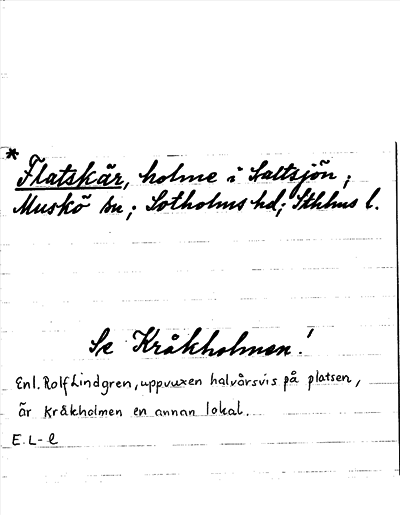 * Flatskär, holme i Saltsjön;
Muskö sn; Sotholms hd; Sthlms l.
Se Kråkholmen!
Enl. Rolf Lindgren, uppvuxen halvårsvis på platsen,
är Kråkholmen en annan lokal.
E. L-l